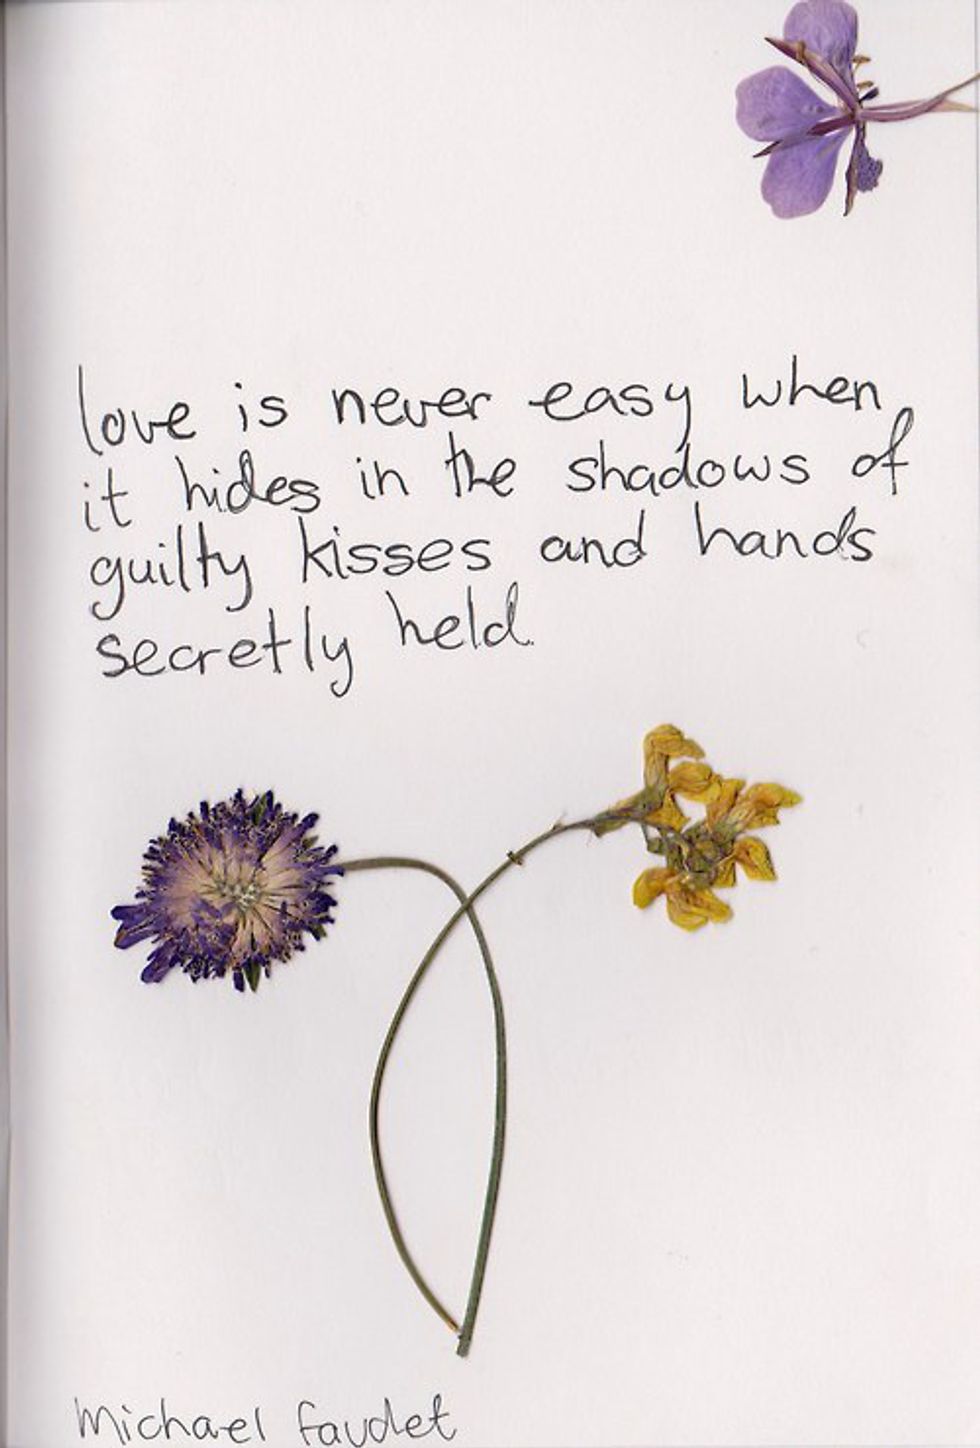 love is never easy when
it hides in the shadows of
guilty kisses and hands
secretly held.
Michael faudet